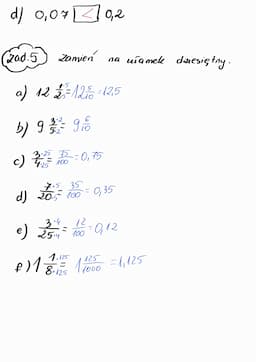 d) 0,07 < 0,2
zad.5 zamień na ułamek dziesiętny.
a) 12 1/2 ·5/·5 = 12 5/10 = 12,5
b) 9 3/5 ·2/·2 = 9 6/10
c) 3/4 ·25/·25 = 75/100 = 0,75
d) 7/20 ·5/·5 = 35/100 = 0,35
e) 3/25 ·4/·4 = 12/100 = 0,12
f) 1 1/8 ·125/·125 = 1 125/1000 = 1,125